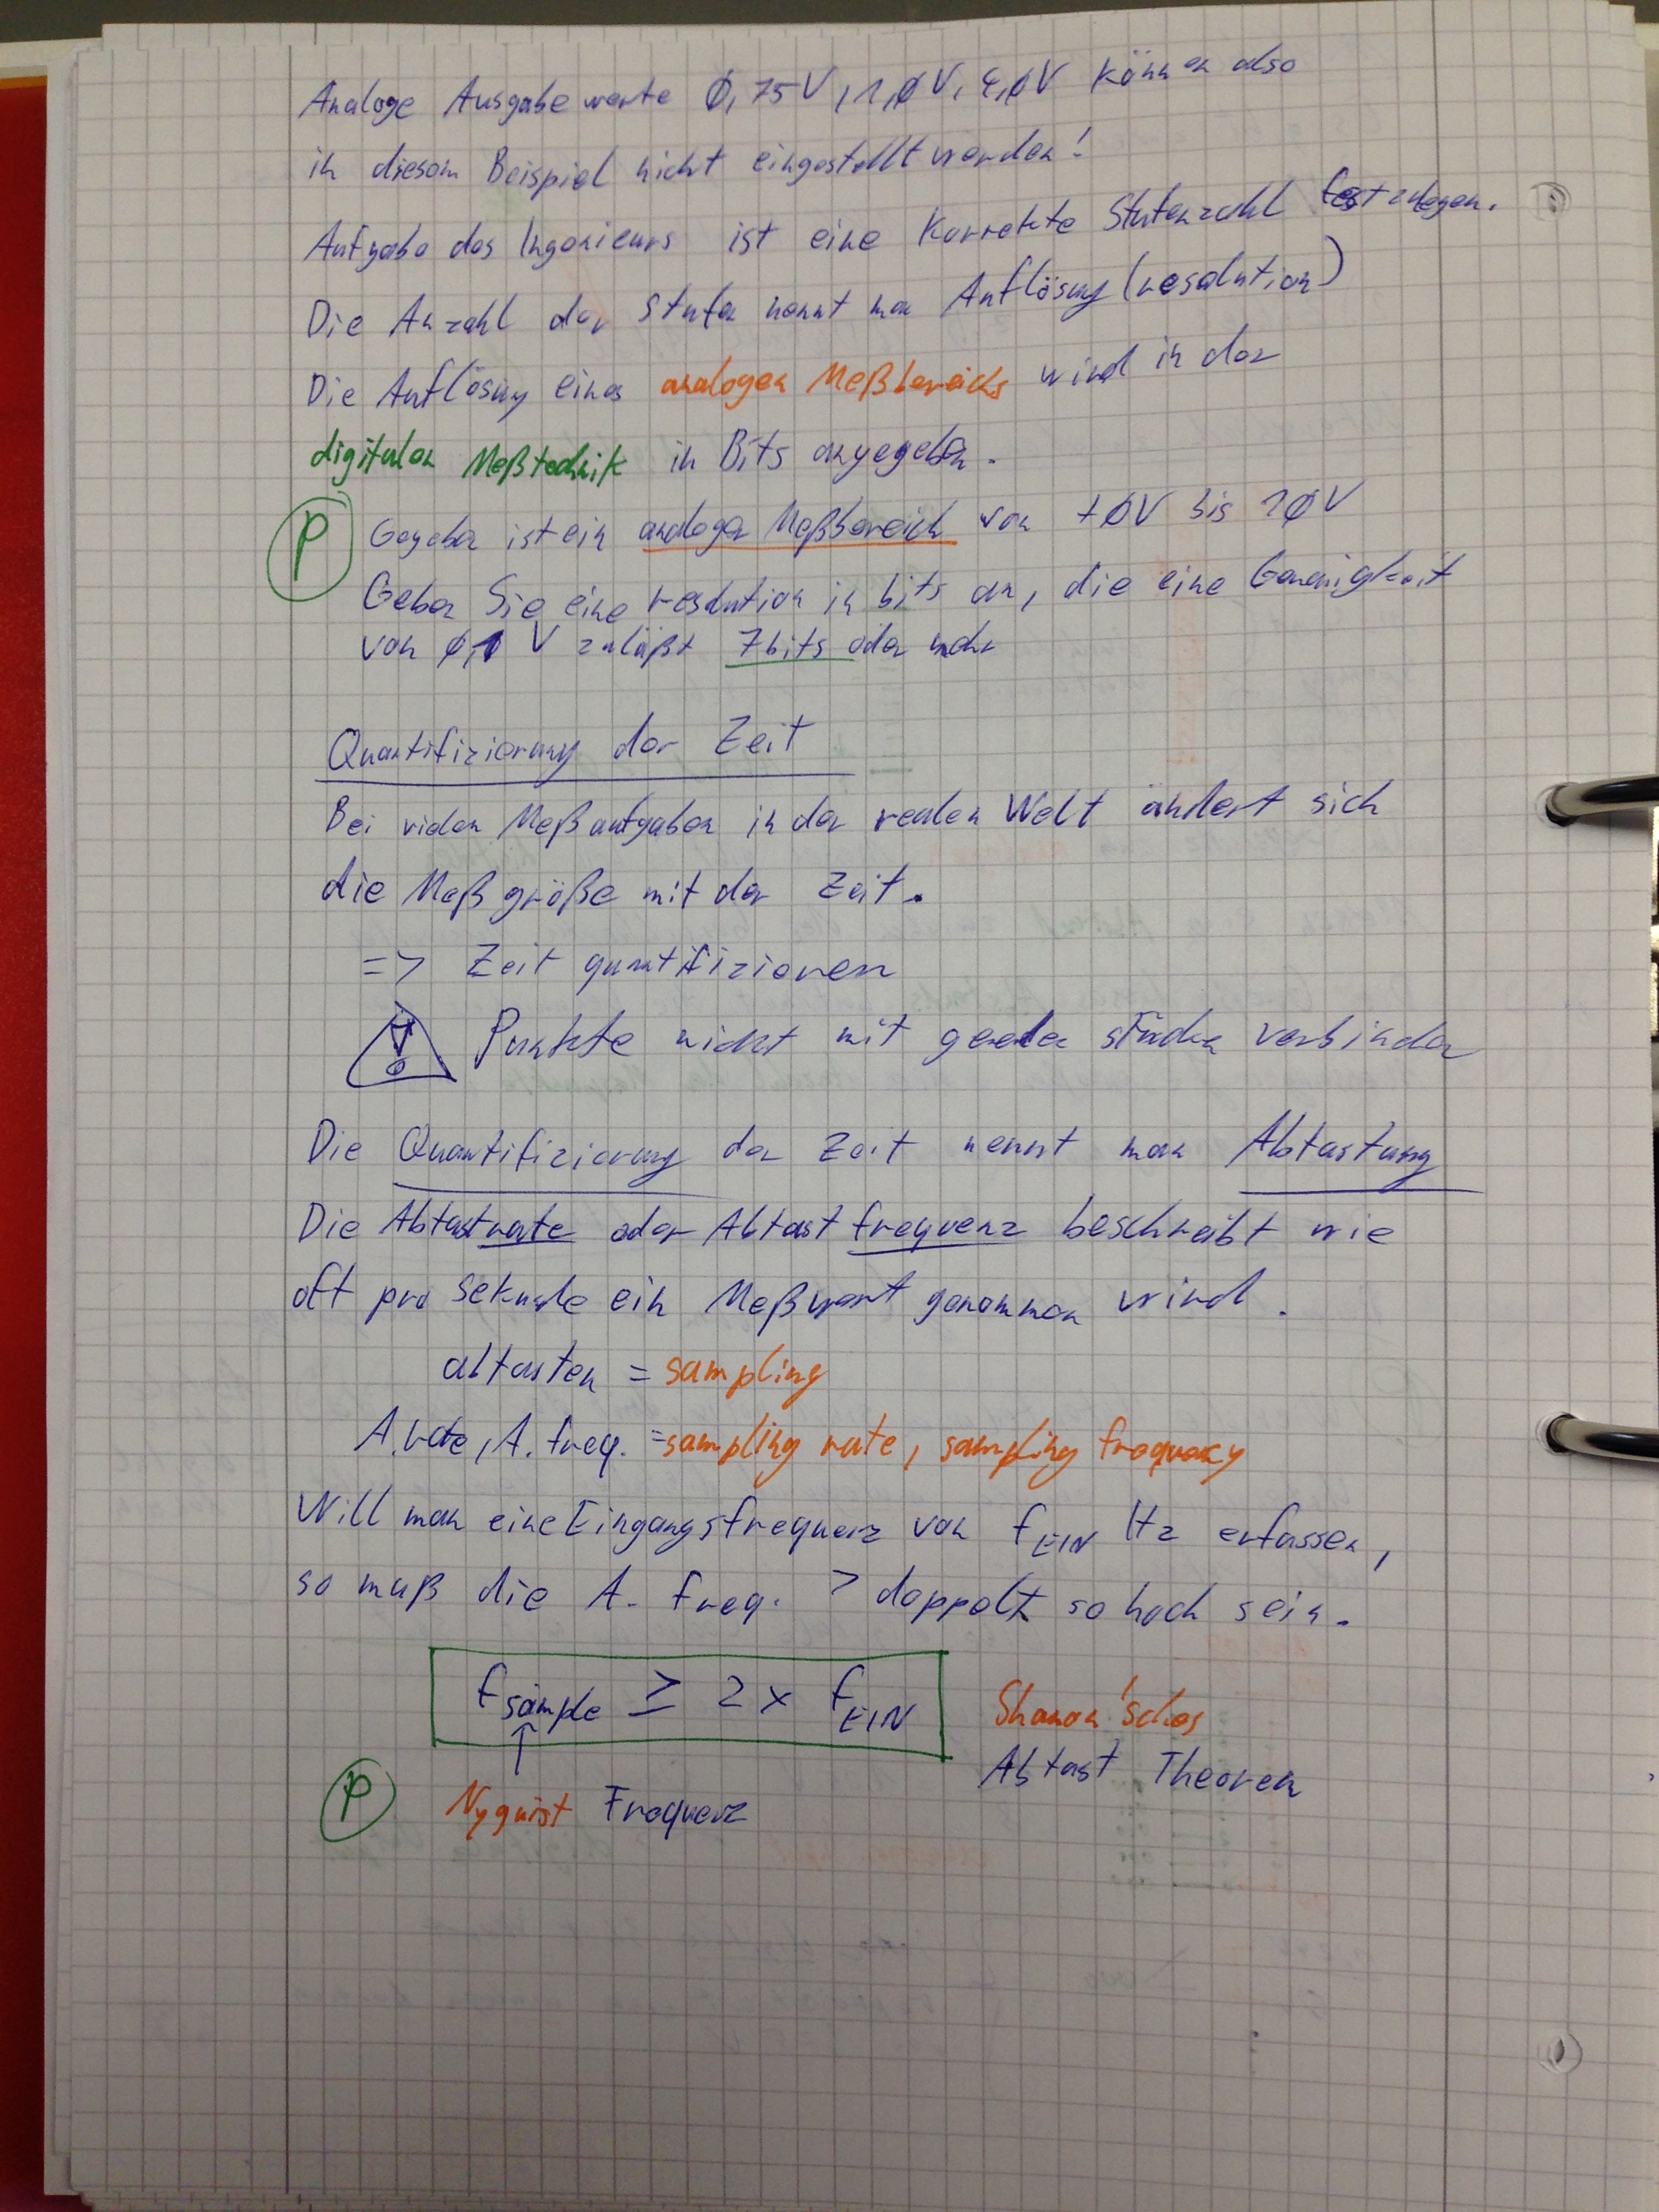 Analoge Ausgabewerte 0,75V, 1,0V, 4,0V können also
in diesem Beispiel nicht eingestellt werden!
Aufgabe des Ingenieurs ist eine korrekte Stufenzahl festzulegen.
Die Anzahl der Stufen nennt man Auflösung (resolution)
Die Auflösung eines analogen Meßbereichs wird in der
digitalen Meßtechnik in Bits angegeben.
P Gegeben ist ein analoger Meßbereich von +0V bis 10V
Geben Sie eine resolution in bits an, die eine Genauigkeit
von 0,1 V zuläßt 7 bits oder mehr
Quantifizierung der Zeit
Bei vielen Meßaufgaben in der realen Welt ändert sich
die Meßgröße mit der Zeit.
=> Zeit quantifizieren
! Punkte nicht mit verbinden
Die Quantifizierung der Zeit nennt man Abtastung
Die Abtastrate oder Abtastfrequenz beschreibt wie
oft pro Sekunde ein Meßwert genommen wird.
abtasten = sampling
A.rate, A. freq. = sampling rate, sampling frequency
Will man eine Eingangsfrequenz von fEIN Hz erfassen,
so muß die A. freq. > doppelt so hoch sein.
fsample ≥ 2 x fEIN
Shanon'sches
Abtast Theorem
↑
P Nyquist Frequenz